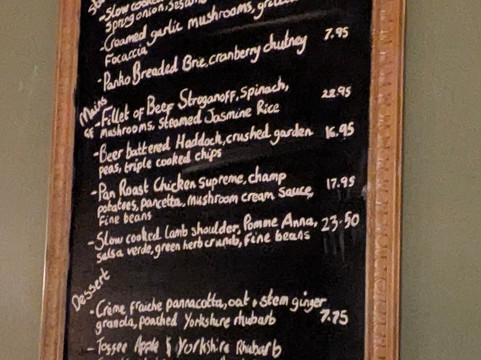 -Slow cooked
Spring onion, sesame
-Creamed garlic mushrooms,
Focaccia
-Panko Breaded Brie, cranberry chutney 7.95
Mains
GF -Fillet of Beef Stroganoff, spinach, 22.95
mushrooms, steamed Jasmine Rice
-Beer battered Haddock, crushed garden 16.95
peas, triple cooked chips
-Pan Roast Chicken Supreme, champ 17.95
potatoes, pancetta, mushroom cream sauce,
Fine beans
-Slow cooked lamb shoulder, Pomme Anna, 23.50
salsa verde, green herb crumb, Fine beans
Dessert
-Crème fraiche pannacotta, oat & stem ginger
granola, poached Yorkshire rhubarb 7.75
-Toffee Apple & Yorkshire Rhubarb